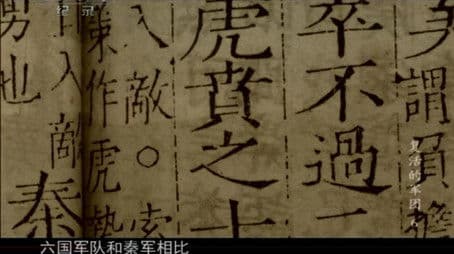 纪录
謂負擔
卒不過二
虎賁之士
入敵○索
作虎勢
入敵
也
秦
复活的军团
六国军队和秦军相比